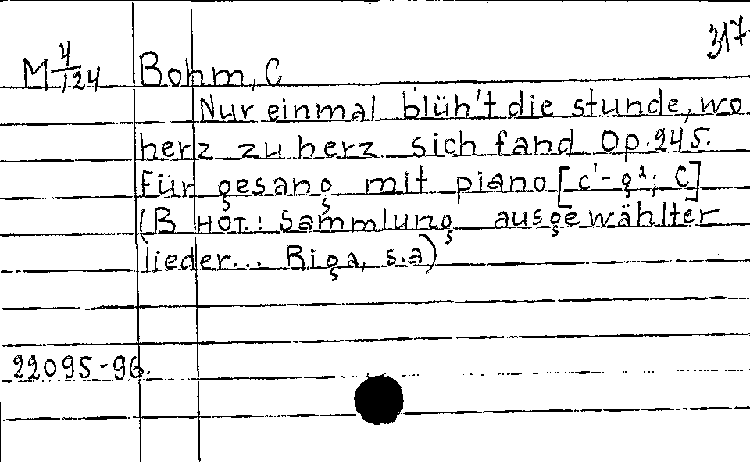 317
M 4/124 Bohm, C
Nur einmal blüh't die stunde, wo
herz zu herz sich fand Op.245.
Für gesang mit piano [c¹-g²; C]
(В нот.: Sammlung ausgewählter
lieder... Riga, s.a)
22095-96.